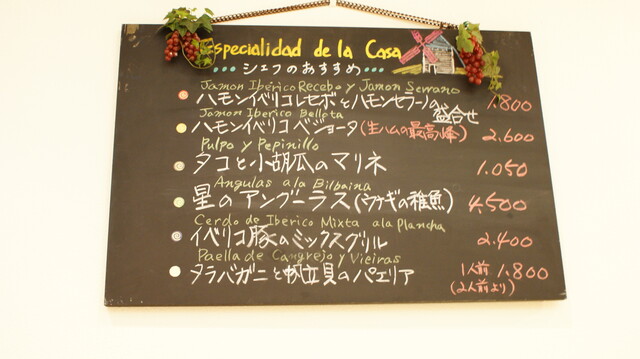 Especialidad de la Casa
シェフのおすすめ
Jamon Ibérico Recebo y Jamon Serrano
ハモンイベリコレセボとハモンセラーノの盛合せ 1.800
Jamon Iberico Bellota
ハモンイベリコベジョータ(生ハムの最高峰) 2.600
Pulpo y Pepinillo
タコと小胡瓜のマリネ 1.050
Angulas a la Bilbaina
星のアングーラス(ウナギの稚魚) 4.500
Cerdo de Iberico Mixta a la Plancha
イベリコ豚のミックスグリル 2.400
Paella de Cangrejo y Vieiras
タラバガニと帆立貝のパエリア 1人前 1.800
(2人前より)